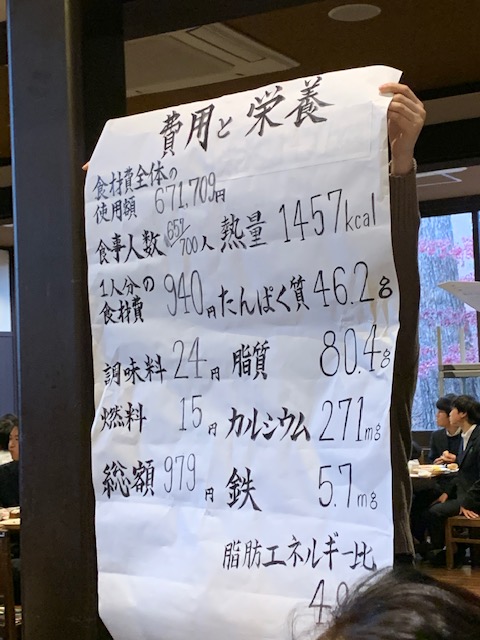 費用と栄養
食材費全体の
使用額 671,709円
食事人数 659/700人 熱量 1457kcal
1人分の
食材費 940円 たんぱく質 46.2g
調味料 24円 脂質 80.4g
燃料 15円 カルシウム 271mg
総額 979円 鉄 5.7mg
脂肪エネルギー比